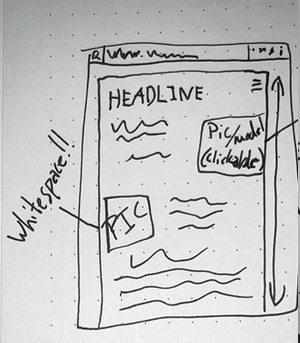 HEADLINE
Pic/modal
(clickable)
Whitespace!!
PIC